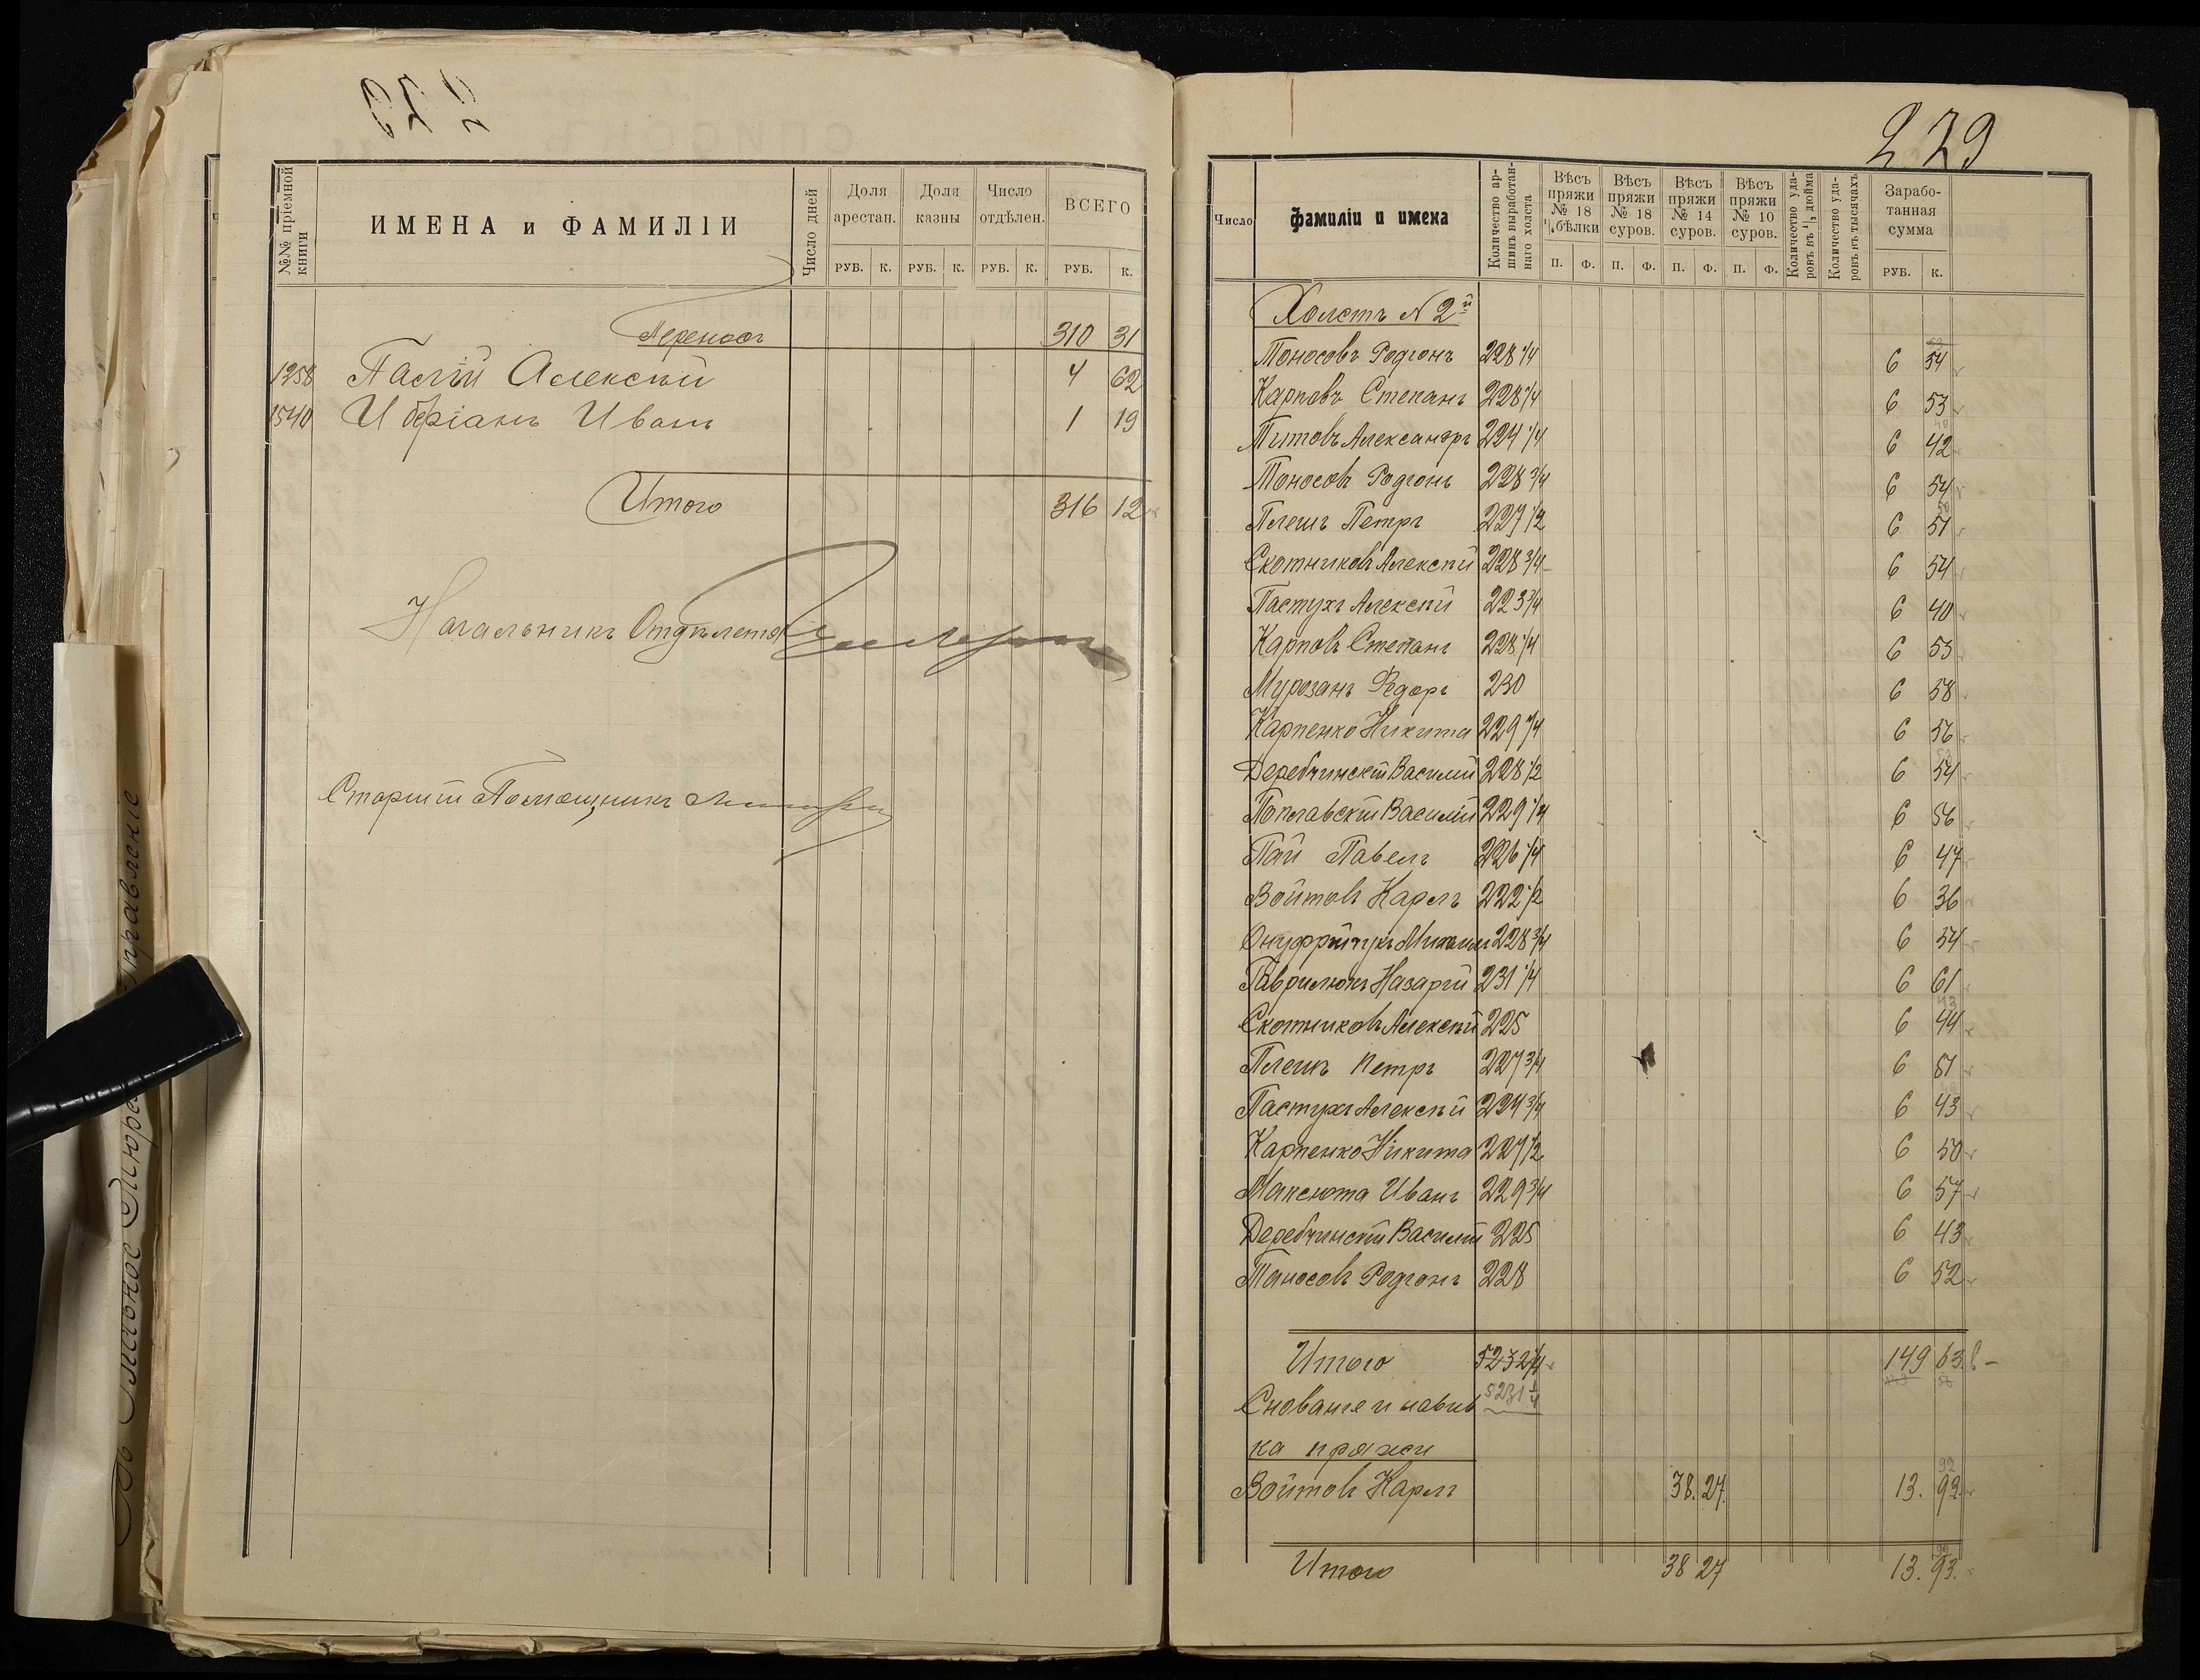 №№ пріемной книги
ИМЕНА и ФАМИЛІИ
Число дней
Доля арестан.
Доля казны
Число отдѣлен.
ВСЕГО
РУБ. К. РУБ. К. РУБ. К. РУБ. К.
Переносъ 310 31
1258 Палій Алексѣй 4 62
1540 Иван 1 19
Итого 316 12
Начальникъ Отдѣленія
Старшій Помощникъ
Главное Тюремное Управленіе
229
Число
Фамиліи и имена
Количество аршинъ выработаннаго холста
Вѣсъ пряжи № 18 ½ бѣлки
Вѣсъ пряжи № 18 суров.
Вѣсъ пряжи № 14 суров.
Вѣсъ пряжи № 10 суров.
Количество ударовъ въ ¼ дюйма
Количество ударовъ въ тысячахъ
Заработанная сумма
П. Ф. П. Ф. П. Ф. П. Ф. РУБ. К.
Холстъ N 2й
Тоносовъ Родіонъ 228 ¾ 6 54
Карповъ Степанъ 228 ¼ 6 53
Титовъ Александръ 224 ¼ 6 42
Тоносовъ Родіонъ 228 ¾ 6 54
Плешъ Петръ 227 ½ 6 51
Скотниковъ Алексѣй 228 ¾ 6 54
Пастухъ Алексѣй 223 ¾ 6 40
Карповъ Степанъ 228 ¼ 6 53
Мурозанъ Ѳедоръ 230 6 58
Карпенко Никита 229 ¼ 6 56
Деребчинскій Василій 228 ½ 6 54
Поплавскій Василій 229 ¼ 6 56
Пай Павелъ 226 ¼ 6 47
Войтовъ Карлъ 222 ½ 6 36
Онуфрійчукъ Михаилъ 228 ¾ 6 54
Гаврилюкъ Назарій 231 ¼ 6 61
Скотниковъ Алексѣй 225 6 44
Плешъ Петръ 227 ¾ 6 51
Пастухъ Алексѣй 224 ¾ 6 43
Карпенко Никита 227 ½ 6 50
Максюта Иванъ 229 ¾ 6 57
Деребчинскій Василій 225 6 43
Таносовъ Родіонъ 228 6 52
Итого 5232 ¼ 149 63
5231 ¼
Снованіе и навив
ка пряжи
Войтовъ Карлъ 38. 27. 13. 93
Итого 38 27 13. 93.